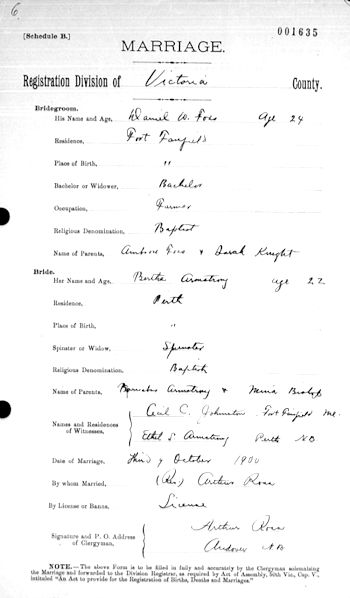 6
001635
[Schedule B.]
MARRIAGE.
Registration Division of Victoria County.
Bridegroom.
His Name and Age, Daniel W. Foss Age 24
Residence, Fort Fairfield
Place of Birth, "
Bachelor or Widower, Bachelor
Occupation, Farmer
Religious Denomination, Baptist
Name of Parents, Ambrose Foss & Sarah Knight
Bride.
Her Name and Age, Bertha Armstrong age 22
Residence, Perth
Place of Birth, "
Spinster or Widow, Spinster
Religious Denomination, Baptist
Name of Parents, Armstrong & Mina Bishop
Names and Residences of Witnesses,
Cecil C. Johnston Fort Fairfield Me.
Ethel S. Armstrong Perth NB
Date of Marriage, third of October 1900
By whom Married, (Rev) Arthur Ross
By License or Banns, License
Signature and P. O. Address of Clergyman,
Arthur Ross
Andover N.B
NOTE.—The above Form is to be filled in fully and accurately by the Clergyman solemnizing
the Marriage and forwarded to the Division Registrar, as required by Act of Assembly, 50th Vic., Cap. V.,
intituled "An Act to provide for the Registration of Births, Deaths and Marriages."